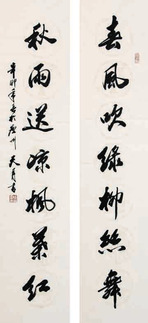 春風吹綠柳絲舞
秋雨送凉楓葉紅
辛卯年書於廣州 天貴書